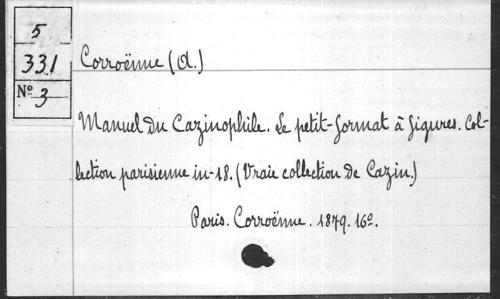 5
331
Nº 3
Corroënne (A.)
Manuel du Cazinophile. Le petit-format à figures. Col-
lection parisienne in-18. (Vraie collection de Cazin.)
Paris. Corroënne. 1879. 16º.